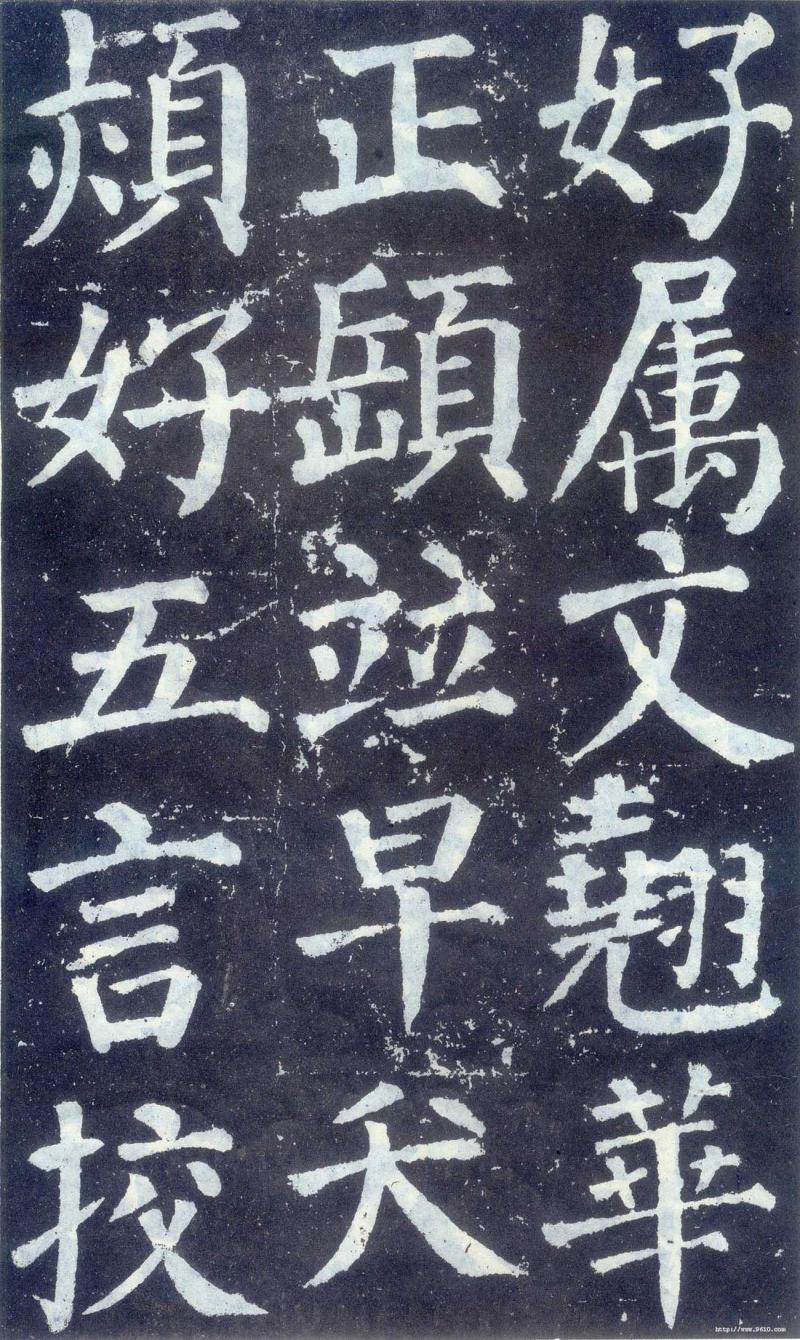 好属文翹華
正並早夭
好五言挍
http://www.9610.com